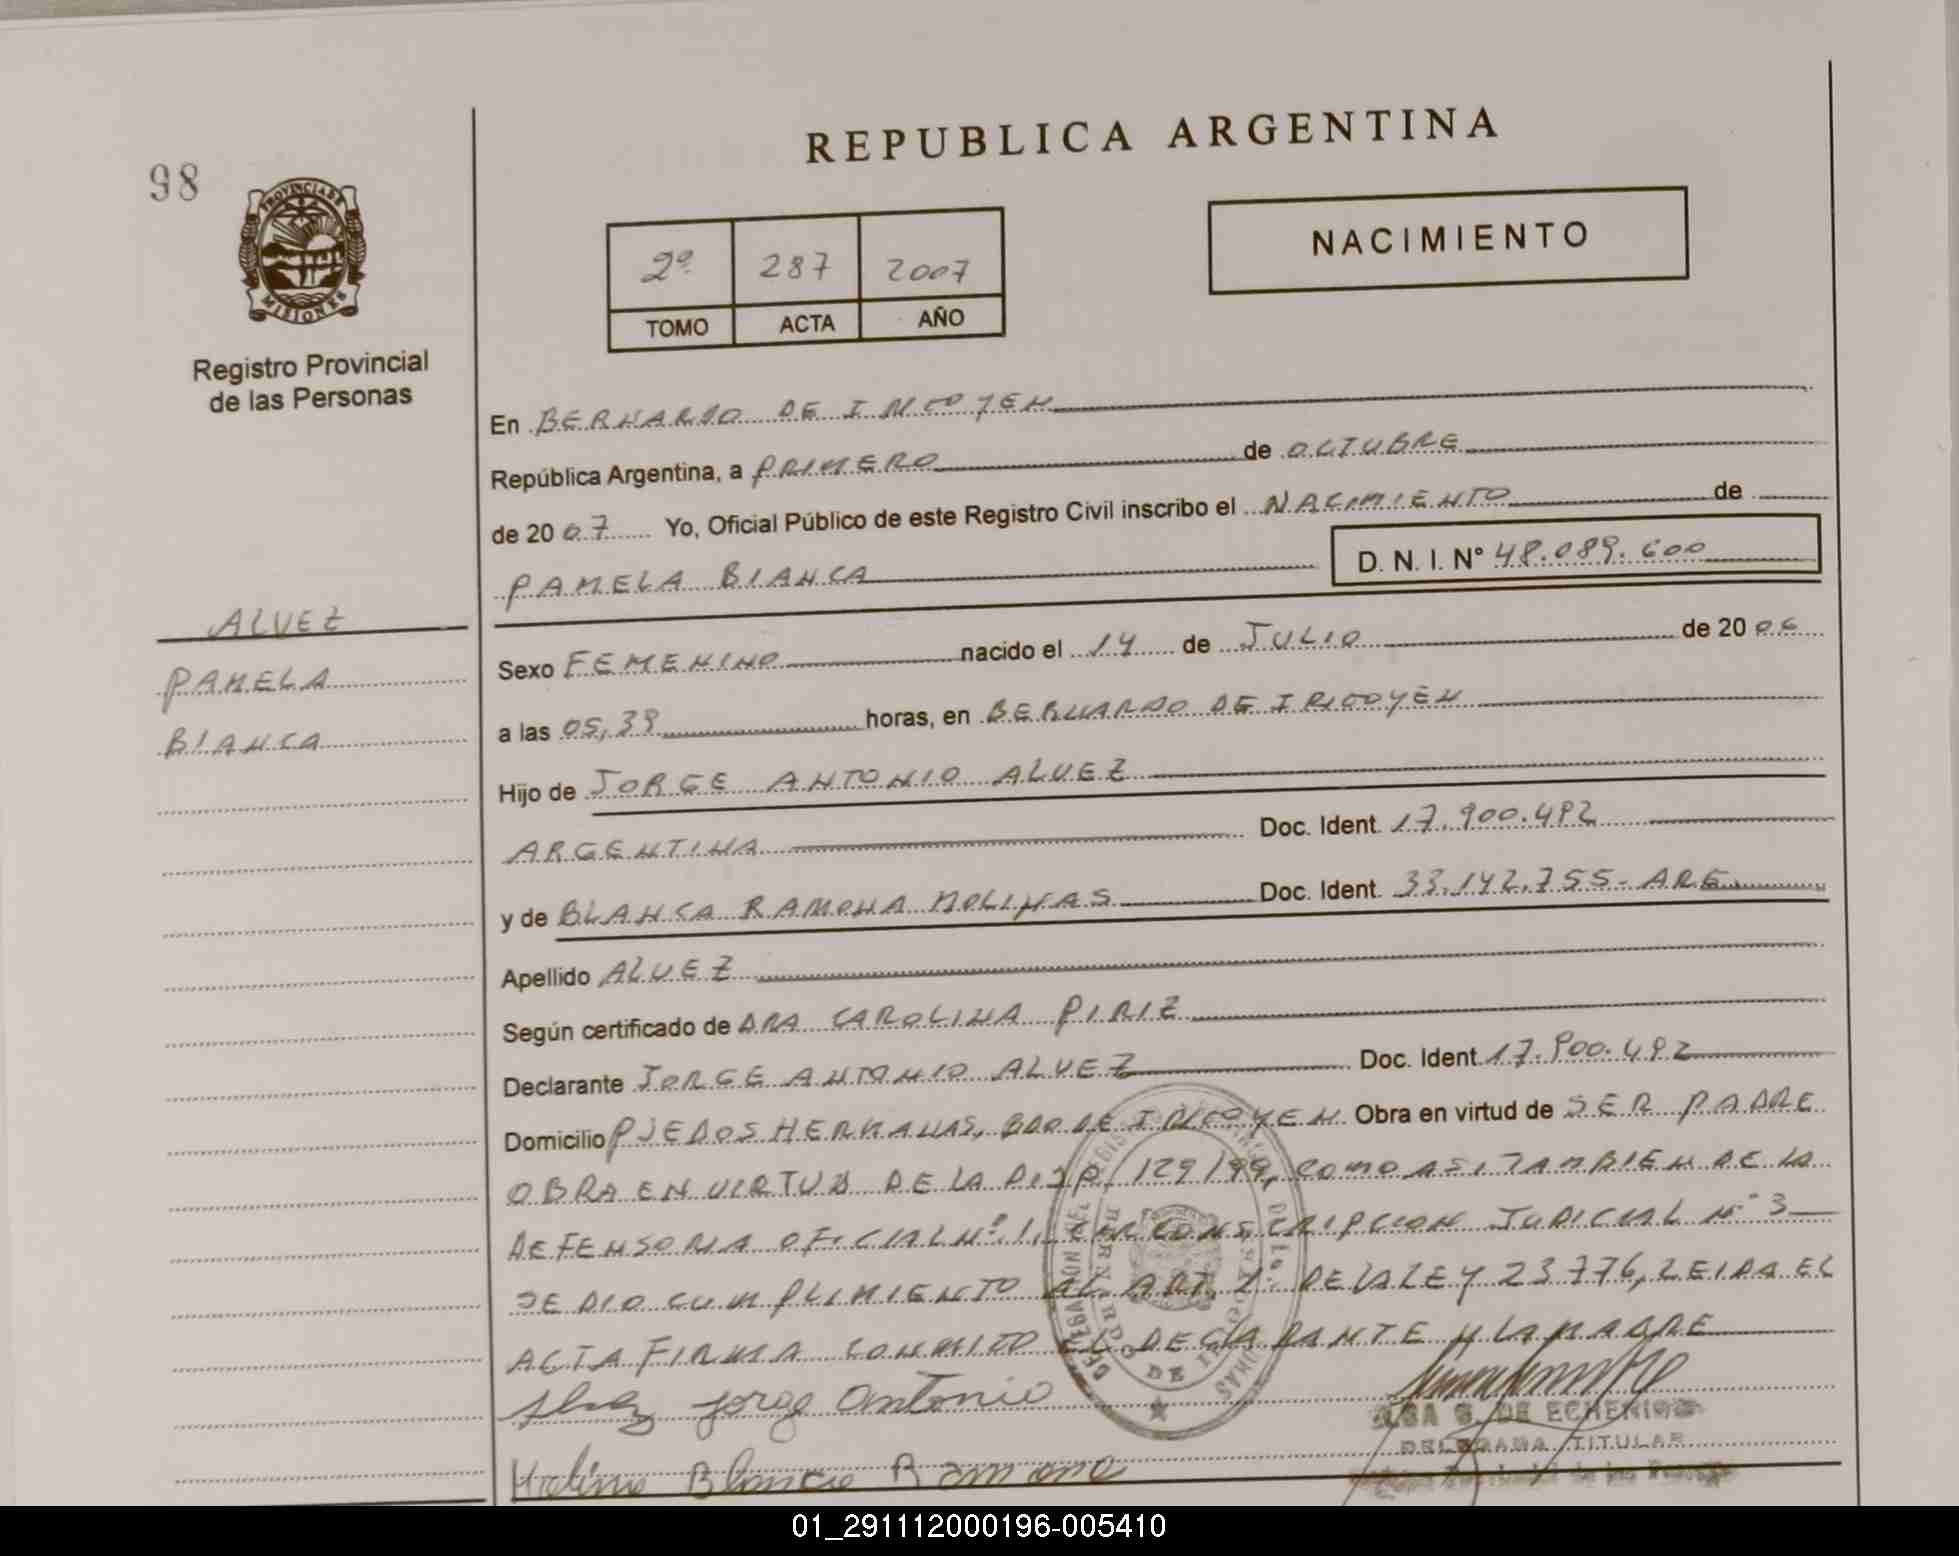 98
PROVINCIA DE
MISIONES
Registro Provincial
de las Personas
REPUBLICA ARGENTINA
2º 287 2007
TOMO ACTA AÑO
NACIMIENTO
En BERNARDO DE IRIGOYEN
República Argentina, a PRIMERO de OCTUBRE
de 2007 Yo, Oficial Público de este Registro Civil inscribo el NACIMIENTO de
PAMELA BIANCA D. N. I. Nº 48.089.600
ALVEZ
PAMELA
BIANCA
Sexo FEMENINO nacido el 14 de JULIO de 2006
a las 05,39 horas, en BERNARDO DE IRIGOYEN
Hijo de JORGE ANTONIO ALVEZ
ARGENTINA Doc. Ident. 17.900.492
y de BLANCA RAMONA MOLINAS Doc. Ident. 33.142.755- ARG.
Apellido ALVEZ
Según certificado de DRA CAROLINA PIRIZ
Declarante JORGE ANTONIO ALVEZ Doc. Ident. 17.900.492
Domicilio PJE DOS HERMANAS, BDO DE IRIGOYEN Obra en virtud de SER PADRE
OBRA EN VIRTUD DE LA DISP. 129/99, COMO ASI TAMBIEN DE LA
DEFENSORIA OFICIAL Nº 1, CIRCONSCRIPCION JUDICIAL Nº 3
SE DIO CUMPLIMIENTO AL ART. DE LA LEY 23776, LEIDA EL
ACTA FIRMA CONMIGO EL DECLARANTE Y LA MADRE
Jorge Antonio
Blanca Ramona
DELEGACION DEL REGISTRO
BERNARDO DE IRIGOYEN
MISIONES
DE ECHENIQUE
DELEGADA TITULAR
01_291112000196-005410